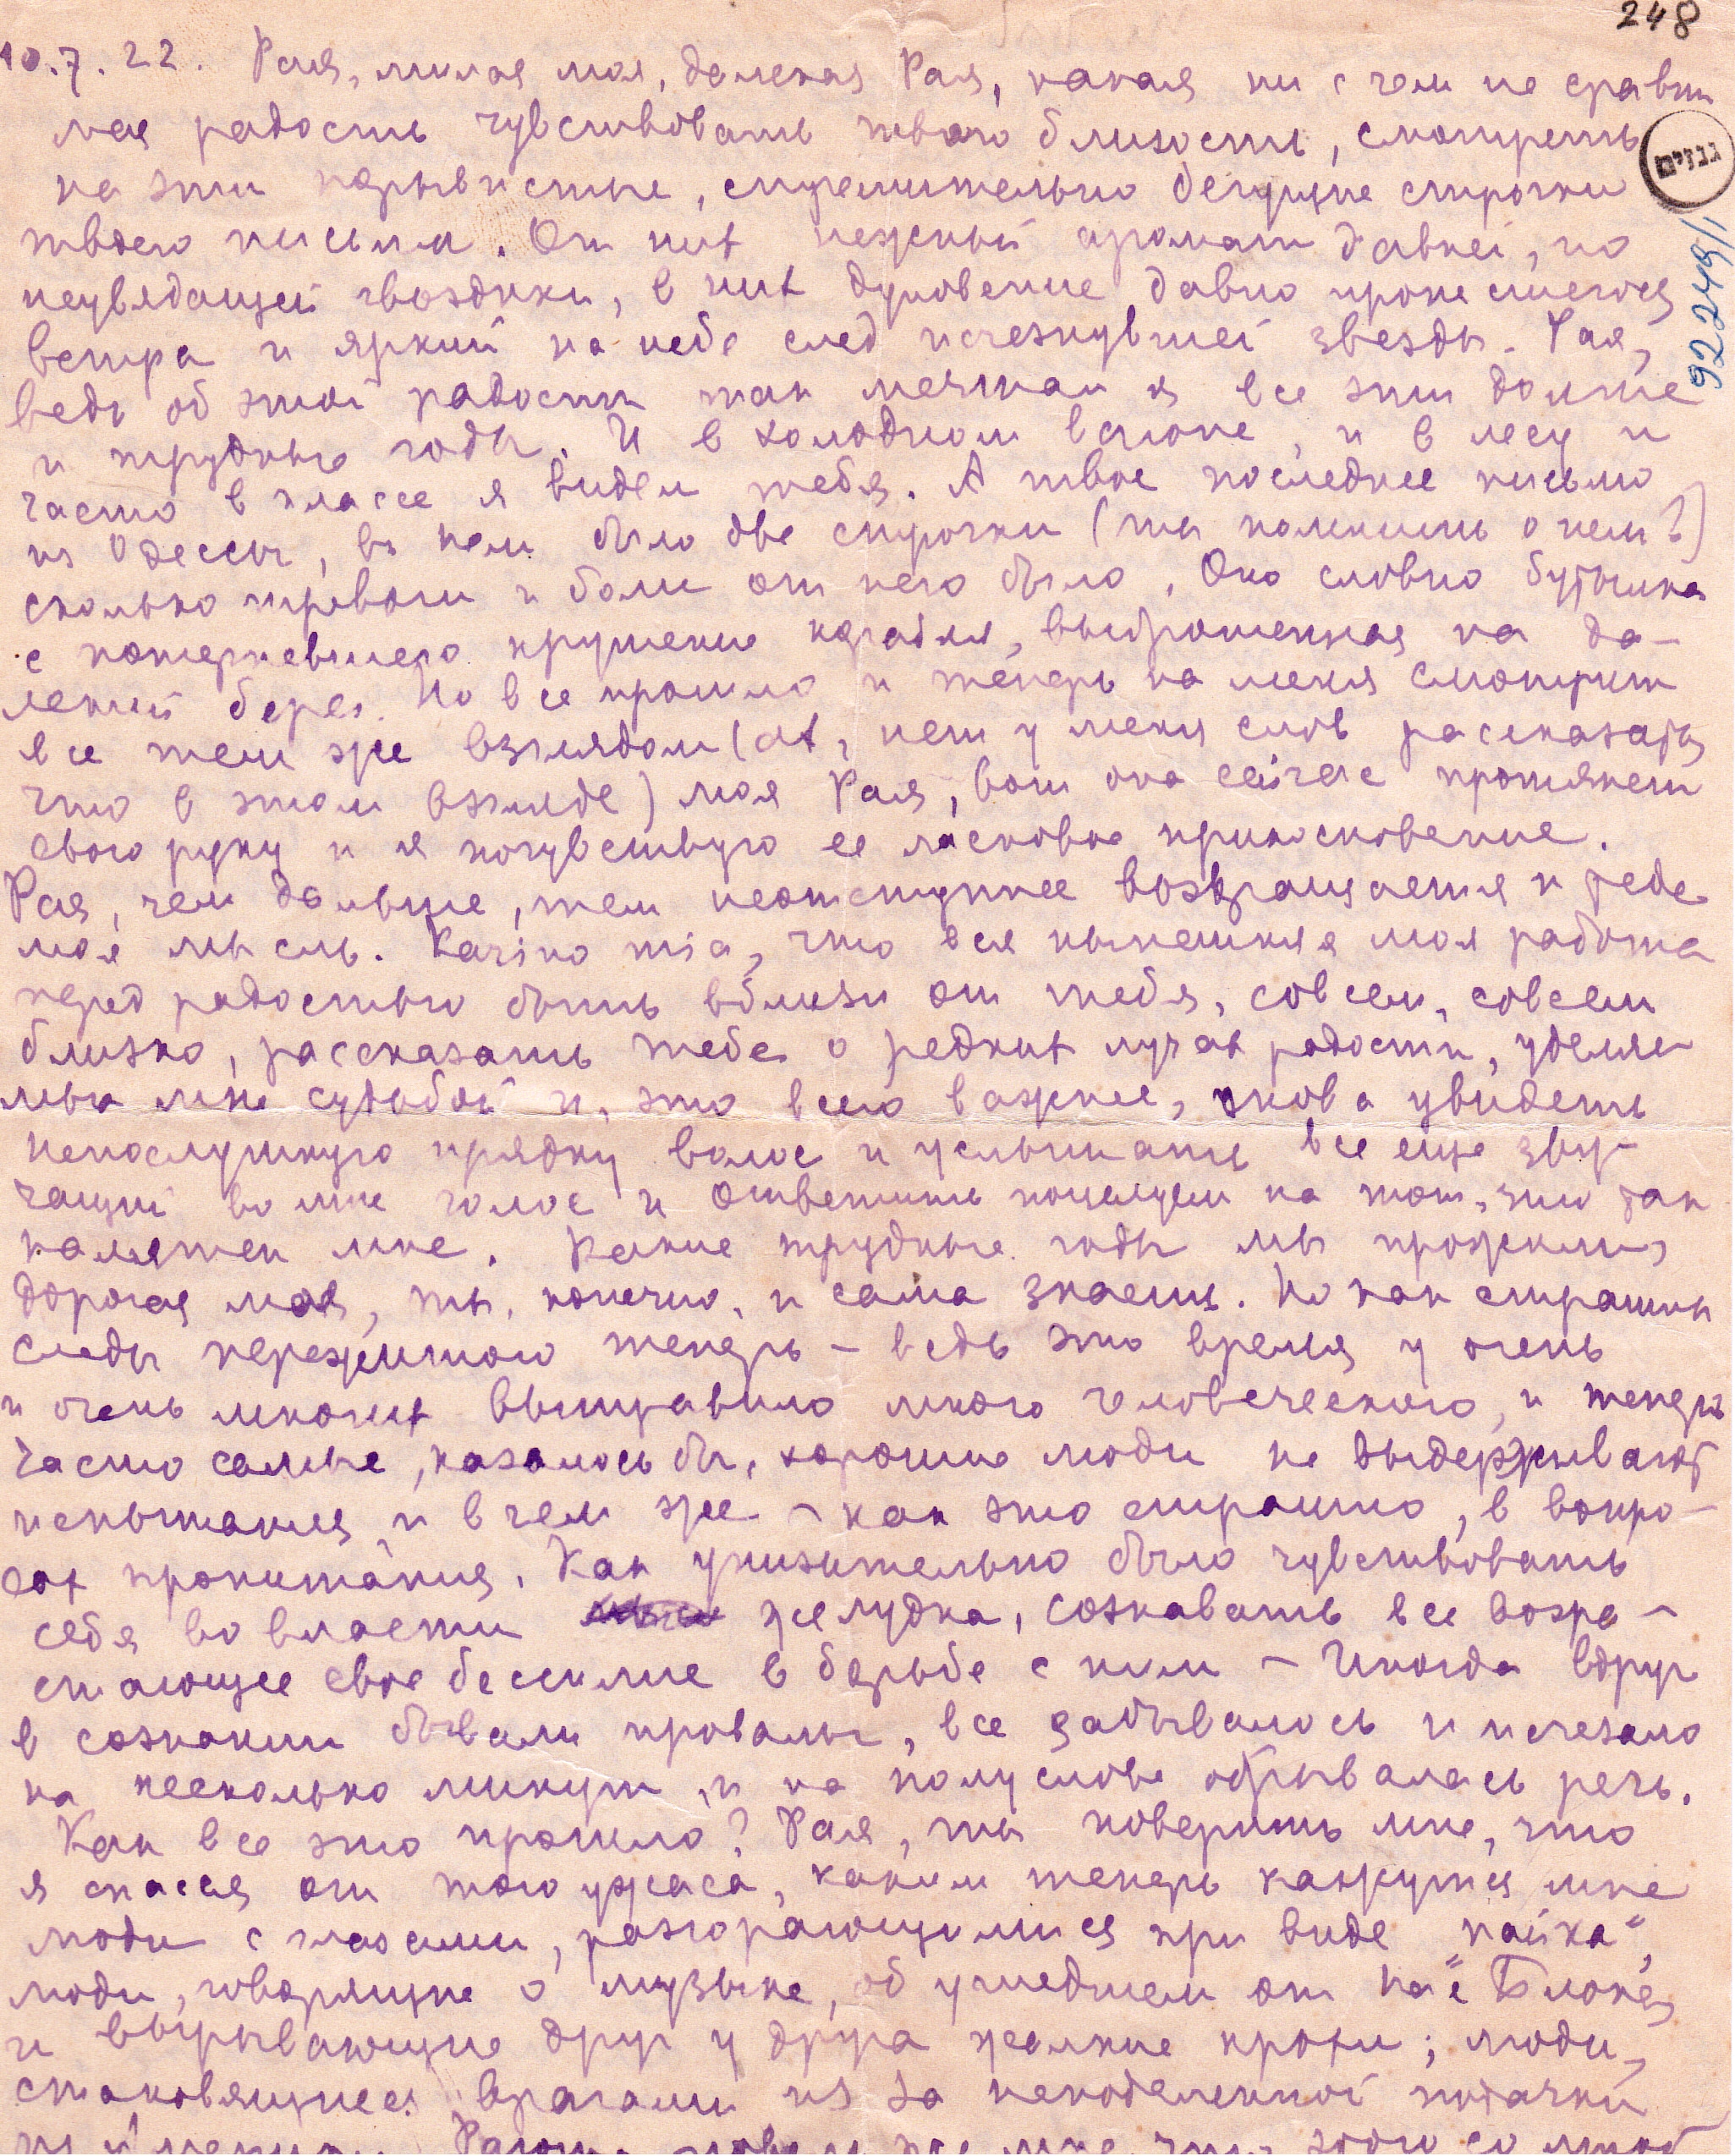 248
10.7.22. Рая, милая моя, далекая Рая, какая ни с чем не сравни
мая радость чувствовать твою близость, смотреть
גנזים
на эти порывистые, стремительно бегущие строчки
92248/1
твоего письма. От них нежный аромат давней, но
неувядающей гвоздики, в них дуновение давно пронесшегося
ветра и яркий на небе след исчезнувшей звезды. Рая,
ведь об этой радости так мечтал я все эти долгие
и трудные годы. И в холодном вагоне, и в лесу и
часто в классе я видел тебя. А твое последнее письмо
из Одессы, в нем было две строчки (ты помнишь о нем?)
сколько тревоги и боли от него было. Оно словно бутылка
с потерпевшего крушение корабля, выброшенная на да-
лекий берег. Но все прошло и теперь на меня смотрит
все тем же взглядом (ах, нет у меня слов рассказать,
что в этом взгляде) моя Рая, вот она сейчас протянет
свою руку и я почувствую ее ласковое прикосновение.
Рая, чем дальше, тем неотступнее возвращается к тебе
моя мысль. Karino mia, что вся нынешняя моя работа
перед радостью быть вблизи от тебя, совсем, совсем
близко, рассказать тебе о редких лучах радости, уделяе
мых мне судьбой и, это всего важнее, снова увидеть
непослушную прядку волос и услышать все еще зву-
чащий во мне голос и ответить поцелуем на тот, что так
памятен мне. Какие трудные годы мы прожили,
дорогая моя, ты, конечно, и сама знаешь. Но как страшны
следы пережитого теперь – ведь это время у очень
и очень многих вытравило много человеческого, и теперь
часто самые, казалось бы, хорошие люди не выдерживают
испытания и в чем же – как это страшно, в вопро-
сах пропитания. Как унизительно было чувствовать
себя во власти желудка, сознавать все возра-
стающее свое бессилие в борьбе с ним – Иногда вдруг
в сознании бывали провалы, все забывалось и исчезало
на несколько минут, и на полуслове обрывалась речь.
Как все это прошло? Рая, ты поверишь мне, что
я спасся от того ужаса, каким теперь кажутся мне
люди с глазами, разгорающимися при виде "пайка",
люди, говорящие о музыке, об ушедшем от нас Блоке,
и вырывающие друг у друга жалкие крохи; люди,
становящиеся врагами из за неподеленной подачки